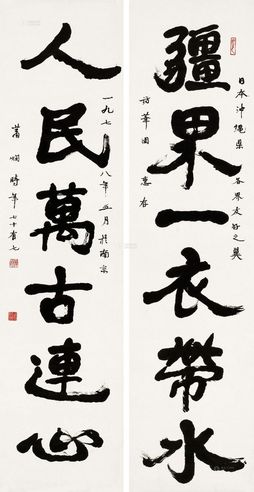 日本沖繩県各界友好之翼
疆界一衣帶水
訪華团惠存
一九七八年五月於南京
人民萬古連心
蕭嫻時年七十有七